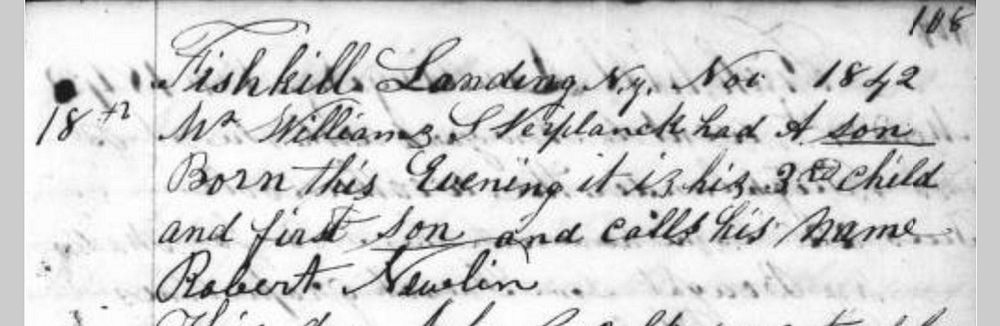 108
Fishkill Landing N.y. Nov 1842
18th Mr William S Verplanck had A son
Born this Evening it is his 3rd child
and first son and calls his name
Robert Newlin